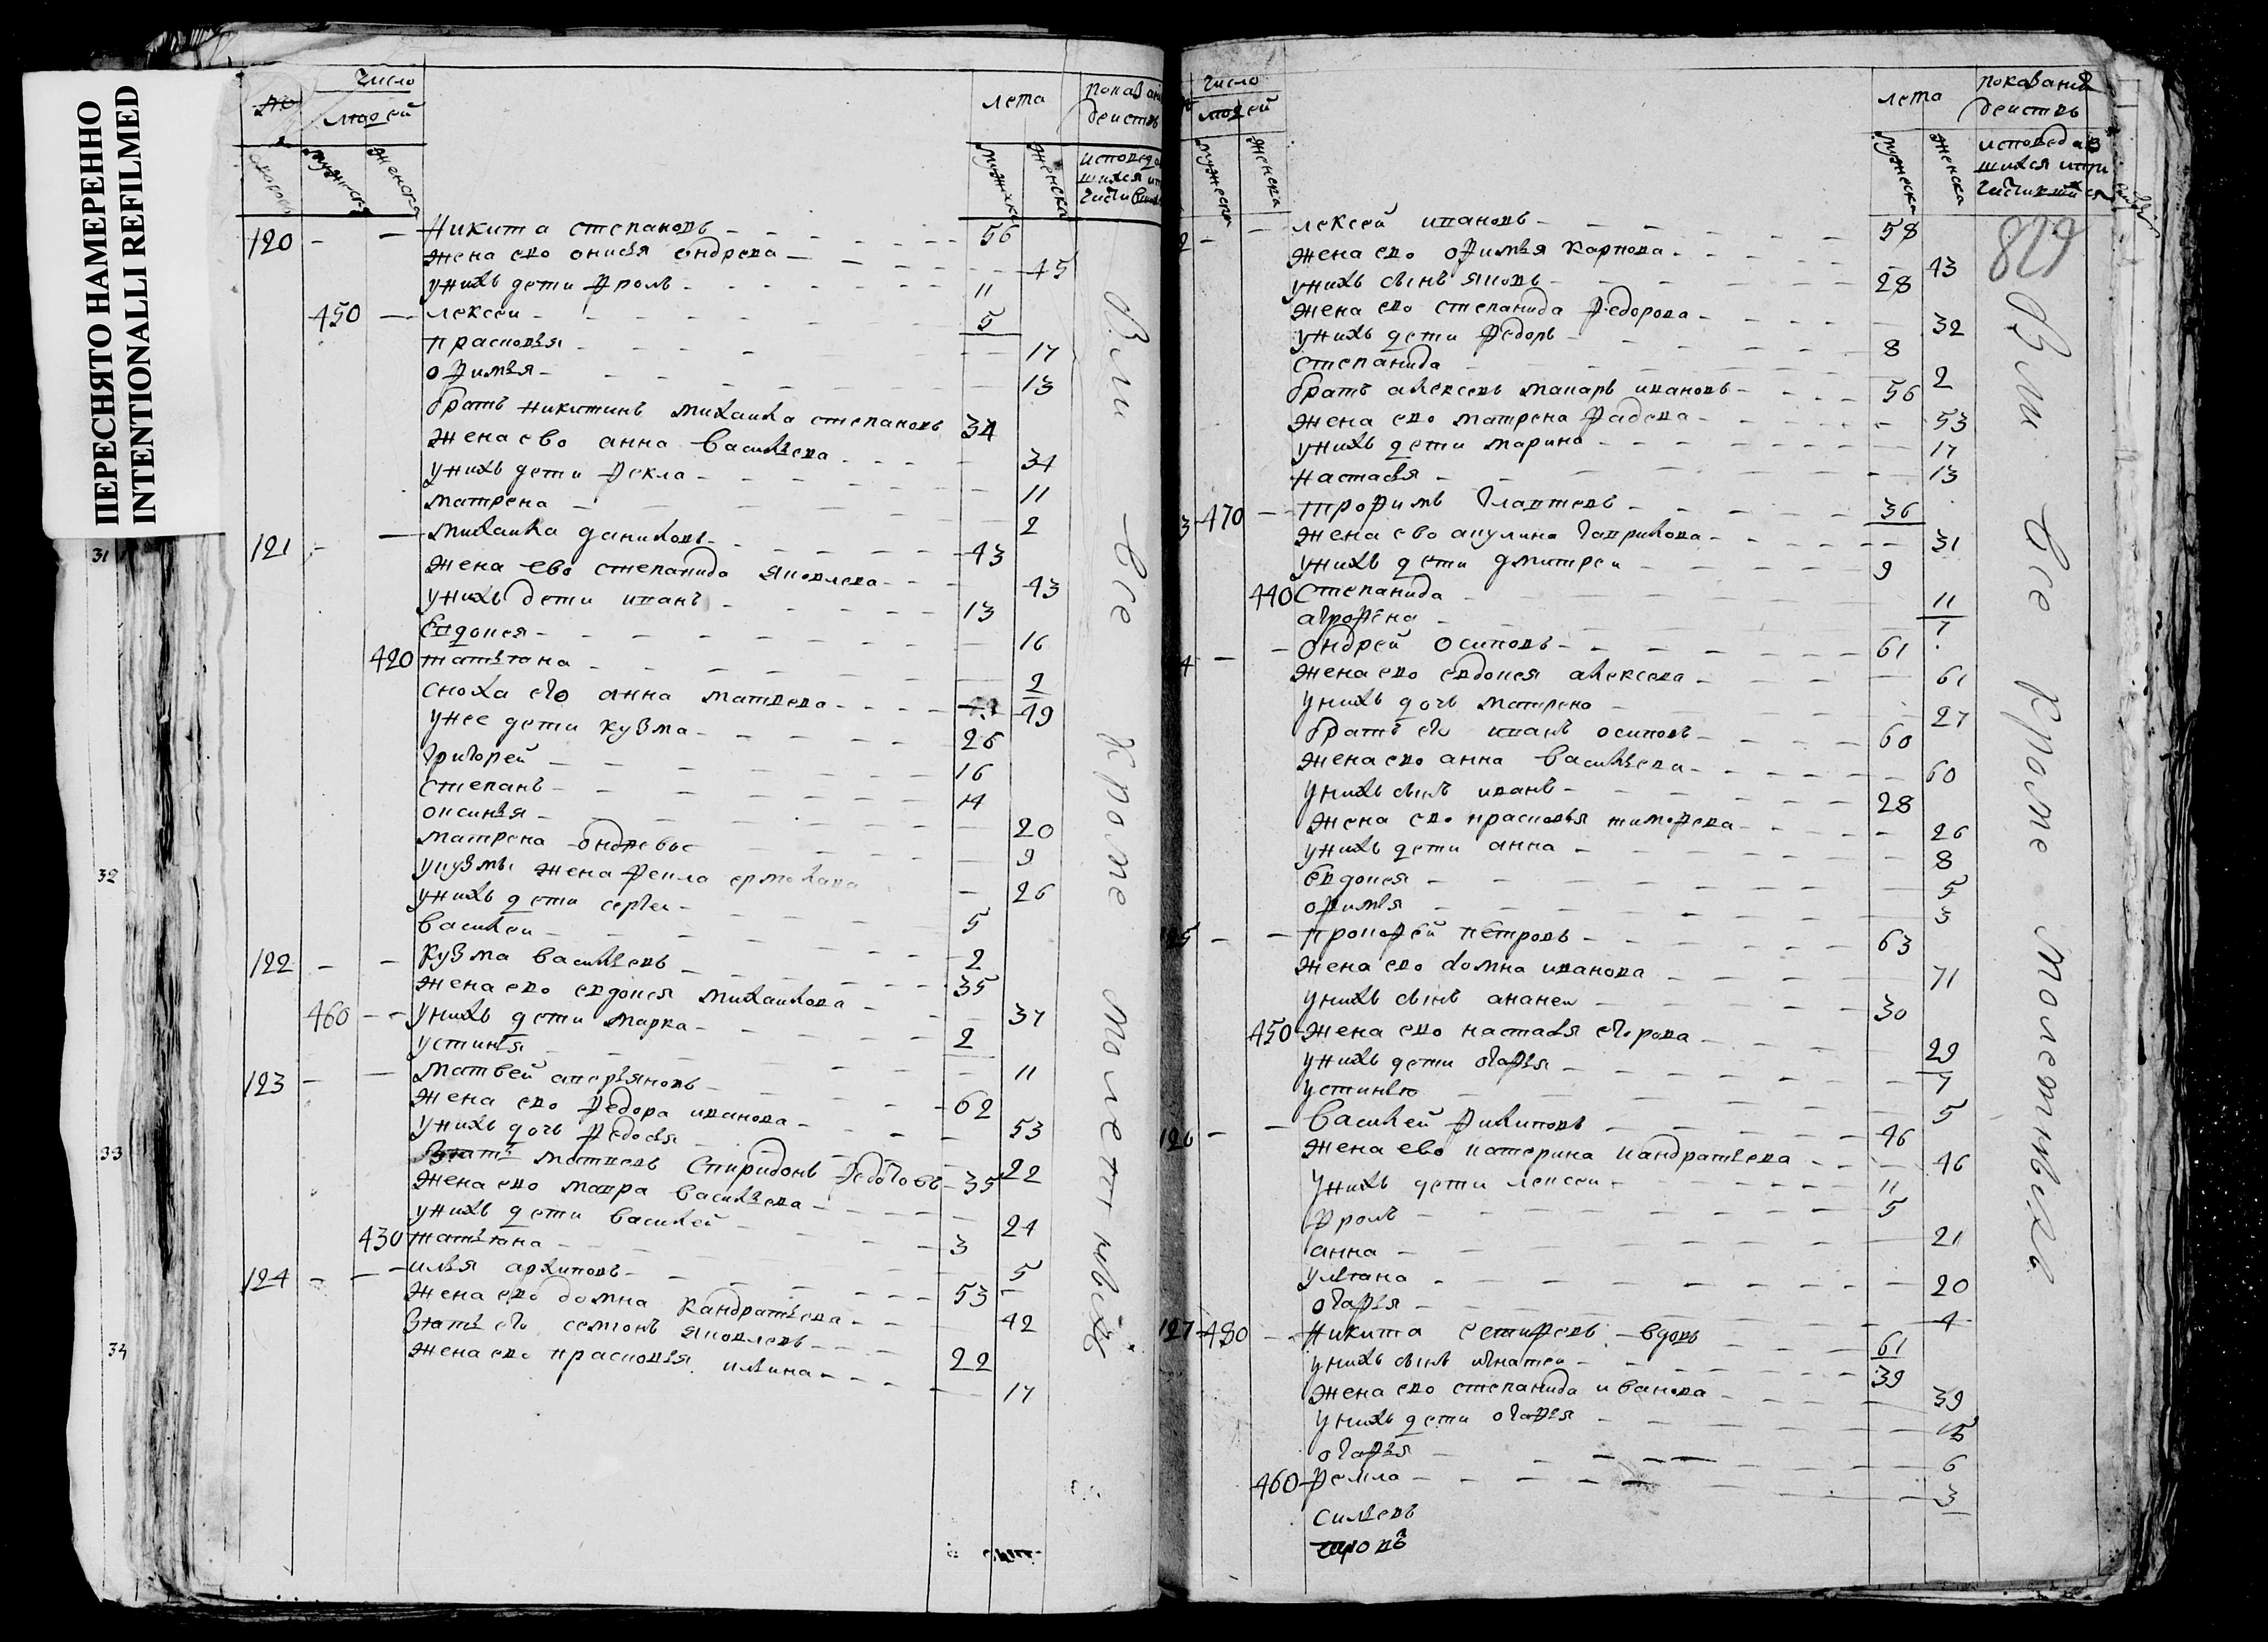 ПЕРЕСНЯТО НАМЕРЕННО
INTENTIONALLI REFILMED
31
32
33
34
число
людей
мужеска
женска
лета
мужеска
женска
120 - - Никита степановъ - 56
жена ево онисья ондреева - 45
унихъ дети фролъ - 11
450 - лексеи - 5
прасковья - 17
офимья - 13
братъ никитинъ михаила степановъ 34
жена ево анна василева - 34
унихъ дети фекла - 11
матрена - 2
121 - - михаила даниловъ - 43
жена ево степанида яковлева - 43
унихъ дети иванъ - 13
Евдокея - 16
420 татьяна - 2
сноха его анна матвеева - 49
унее дети кузма - 26
григорей - 16
степанъ - 14
оксинья - 20
матрена ондревые - 9
укузмы жена фекла ермолаева - 26
унихъ дети сергеи - 5
василеи - 2
122 - - кузма василевъ - 35
жена ево евдокея михаилова - 37
460 - - унихъ дети марка - 2
устинья - 11
123 - - матвей аверьяновъ - 62
жена ево федора иванова - 53
унихъ дочь федосья - 22
зять матвеевъ Спиридонъ федотовъ - 35
жена ево мавра василева - 24
унихъ дети василей - 3
430 татьяна - 5
124 - - - илья архиповъ - 53
жена ево домна кандратьева - 42
зять его семионъ яковлевъ - 22
жена ево прасковья ильина - 17
Вси все кроме молетнихъ
число
людей
мужеска
женска
лета
мужеска
женска
показания
действъ
исповедав
шихся ипри
829
- - лексей ивановъ - 58
жена ево офимья карпова - 43
унихъ сынъ яковъ - 28
жена ево степанида федорова - 32
унихъ дети федоръ - 8
степанида - 2
братъ алексеевъ макаръ ивановъ - 56
жена ево матрена фадеева - 53
унихъ дети марина - 17
настасья - 13
3 470 - трофимъ лаптевъ - 36
жена ево акулина гаврилова - 31
унихъ дети дмитреи - 9
440 Степанида - 11
аграфена - 7
4 - - ондрей осиповъ - 61
жена ево евдокея алексеева - 61
унихъ дочь матрена - 27
братъ его иванъ осиповъ - 60
жена ево анна василева - 60
унихъ сынъ иванъ - 28
жена ево прасковья тимофева - 26
унихъ дети анна - 8
Евдокея - 5
офимья - 3
125 - - прокофей петровъ - 63
жена ево домна иванова - 71
унихъ сынъ ананеи - 30
450 жена ево настасья егорова - 29
унихъ дети огафья - 7
устинью - 5
126 - - василей филиповъ - 46
жена ево катерина кандратьева - 46
унихъ дети лексеи - 11
фролъ - 5
анна - 21
ульяна - 20
огафья - 4
127 480 - никита естифеевъ - вдовъ - 61
унихъ сынъ игнатеи - 39
жена ево степанида иванова - 39
унихъ дети огафья - 15
огафья - 6
460 фекла - 3
Вси все кроме молетнихъ